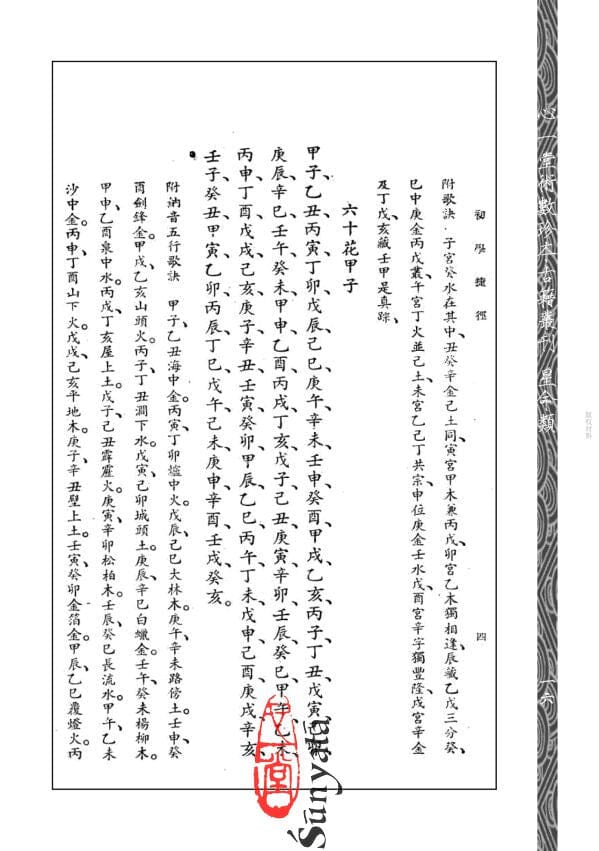 心一堂術數珍本古籍叢刊 星命類
一六
初學捷徑
四
附歌訣·子宮癸水在其中丑癸辛金己土同、寅宮甲木兼丙戊、卯宮乙木獨相逢、辰藏乙戊三分癸、
巳中庚金丙戊叢、午宮丁火並己土、未宮乙己丁共宗、申位庚金壬水戊、酉宮辛字獨豐隆、戌宮辛金
及丁戊、亥藏壬甲是真踪、
六十花甲子
甲子、乙丑、丙寅、丁卯、戊辰、己巳、庚午、辛未、壬申、癸酉、甲戌、乙亥、丙子、丁丑、戊寅、己卯、
庚辰、辛巳、壬午、癸未、甲申、乙酉、丙戌、丁亥、戊子、己丑、庚寅、辛卯、壬辰、癸巳、甲午、乙未、
丙申、丁酉、戊戌、己亥、庚子、辛丑、壬寅、癸卯、甲辰、乙巳、丙午、丁未、戊申、己酉、庚戌、辛亥、
壬子、癸丑、甲寅、乙卯、丙辰、丁巳、戊午、己未、庚申、辛酉、壬戌、癸亥。
附訥音五行歌訣 甲子、乙丑海中金。丙寅、丁卯爐中火。戊辰、己巳大林木。庚午、辛未路傍土。壬申、癸
酉劍鋒金。甲戌、乙亥山頭火。丙子、丁丑澗下水。戊寅、己卯城頭土。庚辰、辛巳白蠟金。壬午、癸未楊柳木。
甲申、乙酉泉中水。丙戌、丁亥屋上土。戊子、己丑霹靂火。庚寅、辛卯松柏木。壬辰、癸巳長流水。甲午、乙未
沙中金。丙申、丁酉山下火。戊戌、己亥平地木。庚子、辛丑壁上土。壬寅、癸卯金箔金。甲辰、乙巳覆燈火。丙
心一堂
Śūnyatā
版权材料